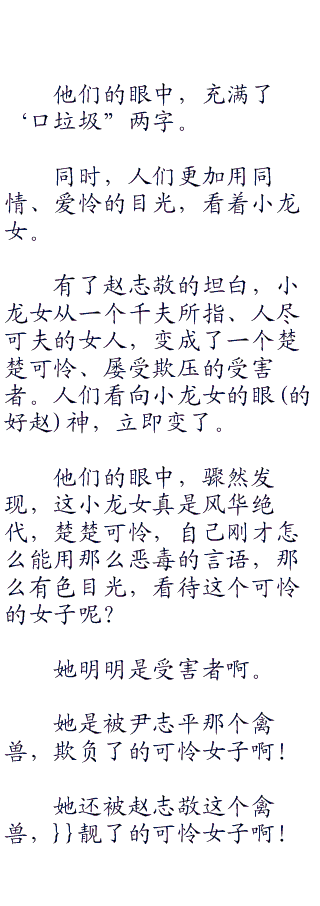 他们的眼中，充满了
‘口垃圾”两字。
同时，人们更加用同
情、爱怜的目光，看着小龙
女。
有了赵志敬的坦白，小
龙女从一个千夫所指、人尽
可夫的女人，变成了一个楚
楚可怜、屡受欺压的受害
者。人们看向小龙女的眼(的
好赵)神，立即变了。
他们的眼中，骤然发
现，这小龙女真是风华绝
代，楚楚可怜，自己刚才怎
么能用那么恶毒的言语，那
么有色目光，看待这个可怜
的女子呢？
她明明是受害者啊。
她是被尹志平那个禽
兽，欺负了的可怜女子啊！
她还被赵志敬这个禽
兽，}}靓了的可怜女子啊！